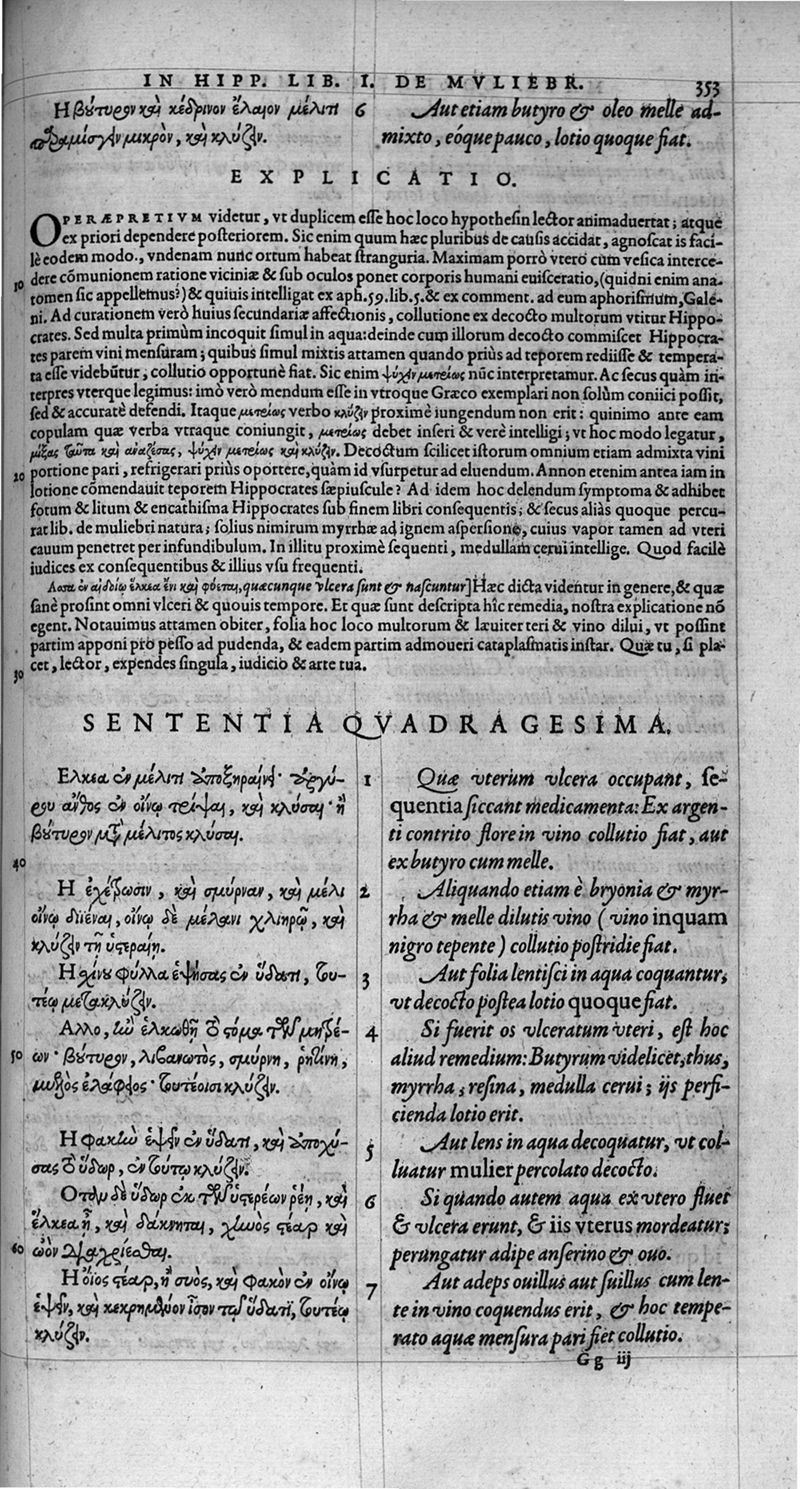 IN HIPP. LIB. I. DE MVLIEBR. 353
Η βούτυρον καὶ κέδρινον ἔλαιον μέλιτι
παραμίσγειν μικρὸν, καὶ κλύζειν.
6 Aut etiam butyro & oleo melle ad-
mixto, eóque pauco, lotio quoque fiat.
EXPLICATIO.
OPERÆPRETIVM videtur, vt duplicem esse hoc loco hypothesin lector animaduertat; atque
ex priori dependere posteriorem. Sic enim quum hæc pluribus de causis accidat, agnoscat is faci-
lè eodem modo, vndenam nunc ortum habeat stranguria. Maximam porrò vtero cum vesica interce-
10 dere cõmunionem ratione viciniæ & sub oculos ponet corporis humani euisceratio, (quidni enim ana-
tomen sic appellemus?) & quiuis intelligat ex aph. 59. lib. 5. & ex comment. ad eum aphorismum, Gale-
ni. Ad curationem verò huius secundariæ affectionis, collutione ex decocto multorum vtitur Hippo-
crates. Sed multa primùm incoquit simul in aqua: deinde cum illorum decocto commiscet Hippocra-
tes parem vini mensuram; quibus simul mixtis attamen quando priùs ad teporem rediisse & tempera-
ta esse videbũtur, collutio opportunè fiat. Sic enim ψύχειν μετρίως nũc interpretamur. Ac secus quàm in-
terpres vterque legimus: imò verò mendum esse in vtroque Græco exemplari non solùm coniici possit,
sed & accuratè defendi. Itaque μετρίως verbo κλύζειν proximè iungendum non erit: quinimo ante eam
copulam quæ verba vtraque coniungit, μετρίως debet inseri & verè intelligi; vt hoc modo legatur,
μίξας ταῦτα καὶ ἀναζέσας, ψύχειν μετρίως καὶ κλύζειν. Decoctum scilicet istorum omnium etiam admixta vini
20 portione pari, refrigerari priùs oportere, quàm id vsurpetur ad eluendum. Annon etenim antea iam in
lotione cõmendauit teporem Hippocrates sæpiuscule? Ad idem hoc delendum symptoma & adhibet
fotum & litum & encathisma Hippocrates sub finem libri consequentis; & secus aliàs quoque percu-
rat lib. de muliebri natura; solius nimirum myrrhæ ad ignem aspersione, cuius vapor tamen ad vteri
cauum penetret per infundibulum. In illitu proximè sequenti, medullam cerui intellige. Quod facilè
iudices ex consequentibus & illius vsu frequenti.
quæcunque vlcera sunt & nascuntur] Hæc dicta videntur in genere, & quæ
sanè prosint omni vlceri & quouis tempore. Et quæ sunt descripta hîc remedia, nostra explicatione nõ
egent. Notauimus attamen obiter, folia hoc loco multorum & læuiter teri & vino dilui, vt possint
partim apponi pro pesso ad pudenda, & eadem partim admoueri cataplasmatis instar. Quæ tu, si pla-
30 cet, lector, expendes singula, iudicio & arte tua.
SENTENTIA QVADRAGESIMA.
Ελκεα ἐν μέλιτι ἀποξηραίνει· ἀργύ-
ρου ἄνθος ἐν οἴνῳ τρίψαι, καὶ κλύσαι· ἢ
βούτυρον μετὰ μέλιτος κλύσαι.
40
Η ἐχέτρωσιν, καὶ σμύρναν, καὶ μέλι
οἴνῳ διιέναι, οἴνῳ δὲ μέλανι χλιηρῷ, καὶ
κλύζειν τῇ ὑστεραίῃ.
Η σχίνου φύλλα ἑψήσας ἐν ὕδατι, του-
τέῳ μετακλύζειν.
Αλλο, ἢν ἑλκωθῇ τὸ στόμα τῶν μητρέ-
50 ων· βούτυρον, λιβανωτὸς, σμύρνη, ῥητίνη,
μυελὸς ἐλάφειος· τουτέοισι κλύζειν.
Η φακὴν ἕψειν ἐν ὕδατι, καὶ ἀποχύ-
σας τὸ ὕδωρ, ἐν τούτῳ κλύζειν.
Οταν δὲ ὕδωρ ἐκ τῶν ὑστερέων ῥέῃ, καὶ
ἕλκεα ᾖ, καὶ δάκνηται, χηνὸς στέαρ καὶ
60 ὠὸν διαχρίεσθαι.
Η ὄιος στέαρ, ἢ συὸς, καὶ φακὸν ἐν οἴνῳ
ἕψειν, καὶ κεκρημένον ἴσον τῷ ὕδατι, τουτέῳ
κλύζειν.
1 Quæ vterum vlcera occupant, se-
quentia siccant medicamenta: Ex argen-
ti contrito flore in vino collutio fiat, aut
ex butyro cum melle.
2 Aliquando etiam è bryonia & myr-
rha & melle dilutis vino (vino inquam
nigro tepente) collutio postridie fiat.
3 Aut folia lentisci in aqua coquantur,
vt decocto postea lotio quoque fiat.
4 Si fuerit os vlceratum vteri, est hoc
aliud remedium: Butyrum videlicet, thus,
myrrha, resina, medulla cerui; ijs perfi-
cienda lotio erit.
5 Aut lens in aqua decoquatur, vt col-
luatur mulier percolato decocto.
6 Si quando autem aqua ex vtero fluet
& vlcera erunt, & iis vterus mordeatur;
perungatur adipe anserino & ouo.
7 Aut adeps ouillus aut suillus cum len-
te in vino coquendus erit, & hoc tempe-
rato aquæ mensura pari fiet collutio.
Gg iij